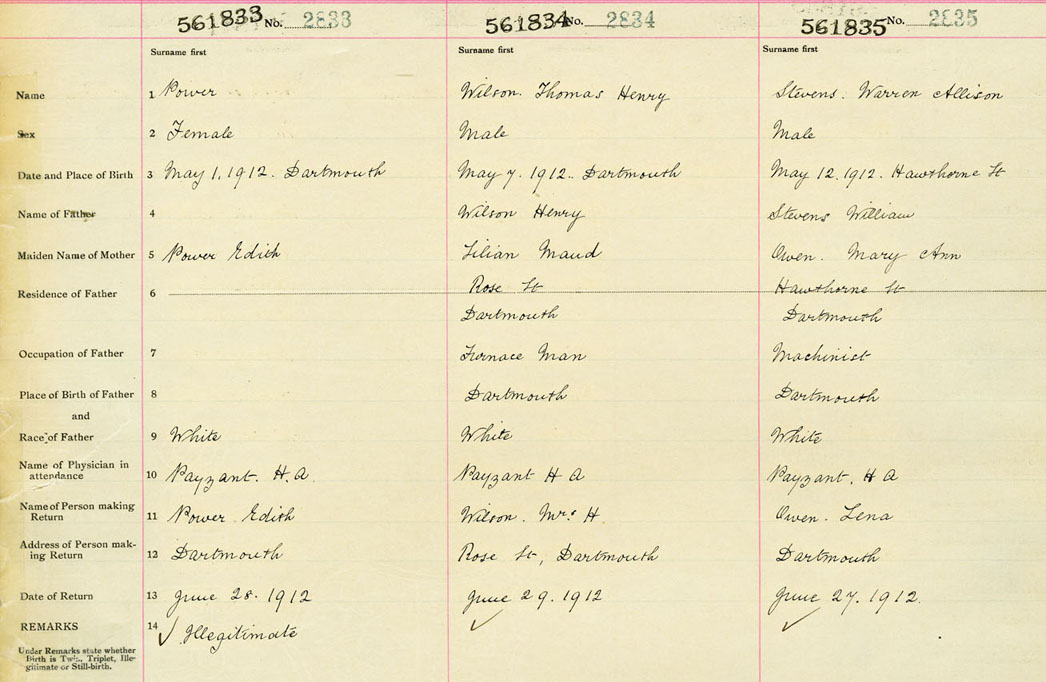 561833 No. 2833 561834 No. 2834 561835 No. 2835
Surname first Surname first Surname first
Name 1 Power Wilson. Thomas Henry Stevens. Warren Allison
Sex 2 Female Male Male
Date and Place of Birth 3 May 1, 1912. Dartmouth May 7. 1912.. Dartmouth May 12. 1912. Hawthorne St
Name of Father 4 Wilson Henry Stevens William
Maiden Name of Mother 5 Power Edith Lilian Maud Owen. Mary Ann
Residence of Father 6 Rose St Hawthorne St
Dartmouth Dartmouth
Occupation of Father 7 Furnace Man Machinist
Place of Birth of Father 8 Dartmouth Dartmouth
and
Race of Father 9 White White White
Name of Physician in
attendance 10 Payzant. H. A. Payzant H A Payzant. H A
Name of Person making
Return 11 Power Edith Wilson. Mrs H. Owen. Lena
Address of Person mak-
ing Return 12 Dartmouth Rose St, Dartmouth Dartmouth
Date of Return 13 June 28. 1912 June 29. 1912 June 27. 1912.
REMARKS 14 ✓ Illegitimate ✓ ✓
Under Remarks state whether
Birth is Twin, Triplet, Ille-
gitimate or Still-birth.